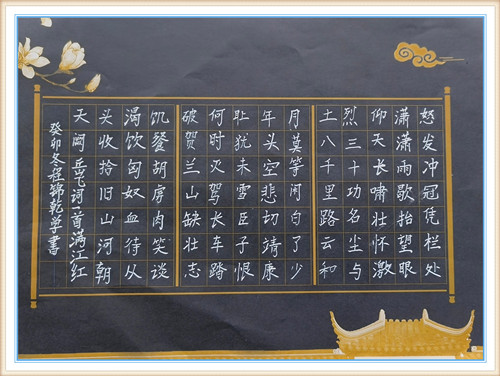 怒发冲冠凭栏处
潇潇雨歇抬望眼
仰天长啸壮怀激
烈三十功名尘与
土八千里路云和
月莫等闲白了少
年头空悲切靖康
耻犹未雪臣子恨
何时灭驾长车踏
破贺兰山缺壮志
饥餐胡虏肉笑谈
渴饮匈奴血待从
头收拾旧山河朝
天阙 岳飞词一首满江红
癸卯冬程锦乾学書